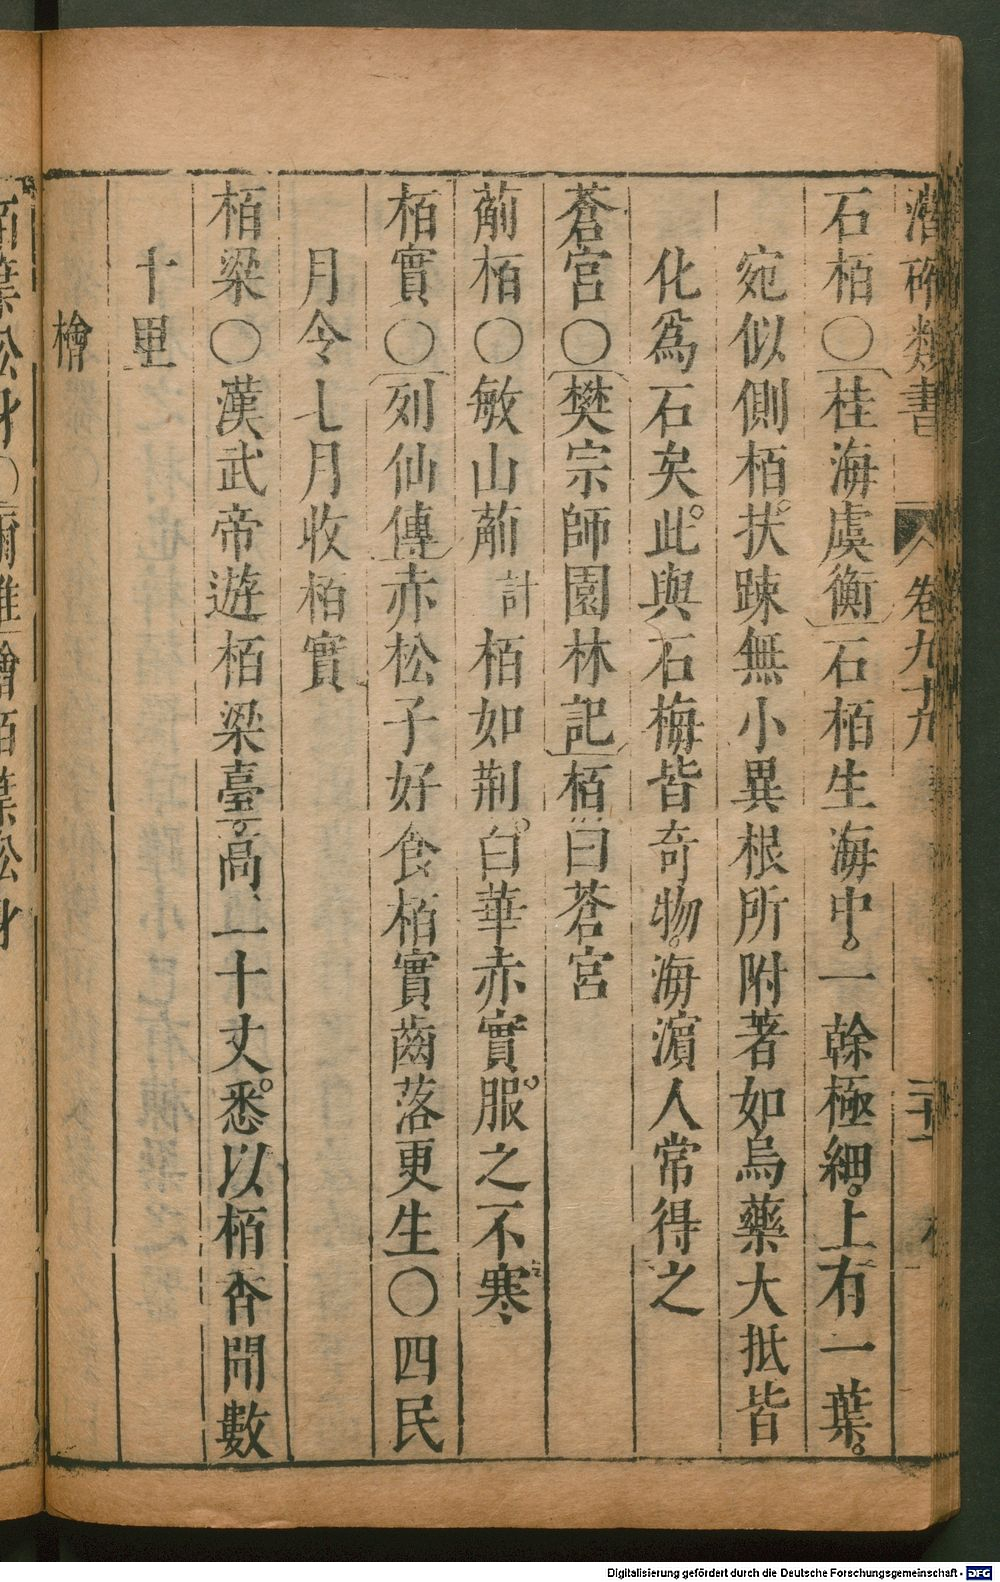 潛確類書 卷九十九
石栢〇桂海虞衡石栢生海中。一幹極細。上有一葉。
宛似側栢。扶踈無小異根所附著如烏藥大抵皆
化爲石矣。此與石梅皆奇物。海濵人常得之
蒼官〇樊宗師園林記栢曰蒼宮
葪栢〇敏山葪計栢如荆。白華赤實。服之不寒
栢實〇列仙傳赤松子好食栢實齒落更生〇四民
月令七月收栢實
栢梁〇漢武帝遊栢梁臺。高二十丈。悉以栢香聞數
十里
檜
栢葉松身〇爾雅檜栢葉松身
Digitalisierung gefördert durch die Deutsche Forschungsgemeinschaft - DFG